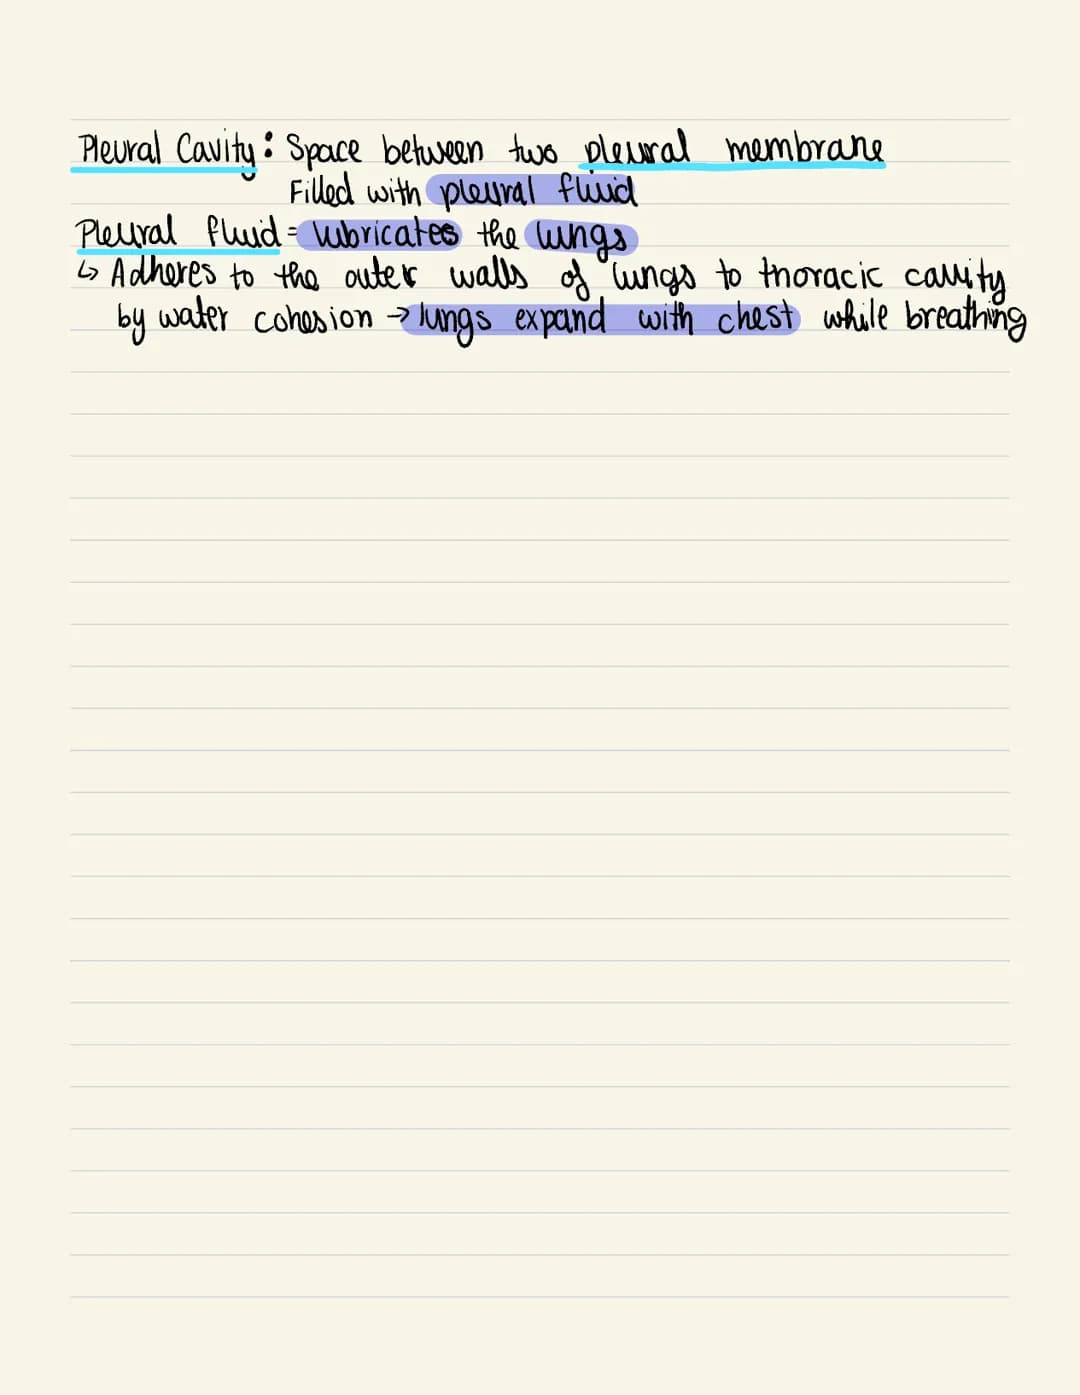 Pleural Cavity: Space between two pleural membrane
Filled with pleural fluid
Pleural fluid = lubricates the lungs
↳ Adheres to the outer walls of lungs to thoracic cavity
by water cohesion → lungs expand with chest while breathing